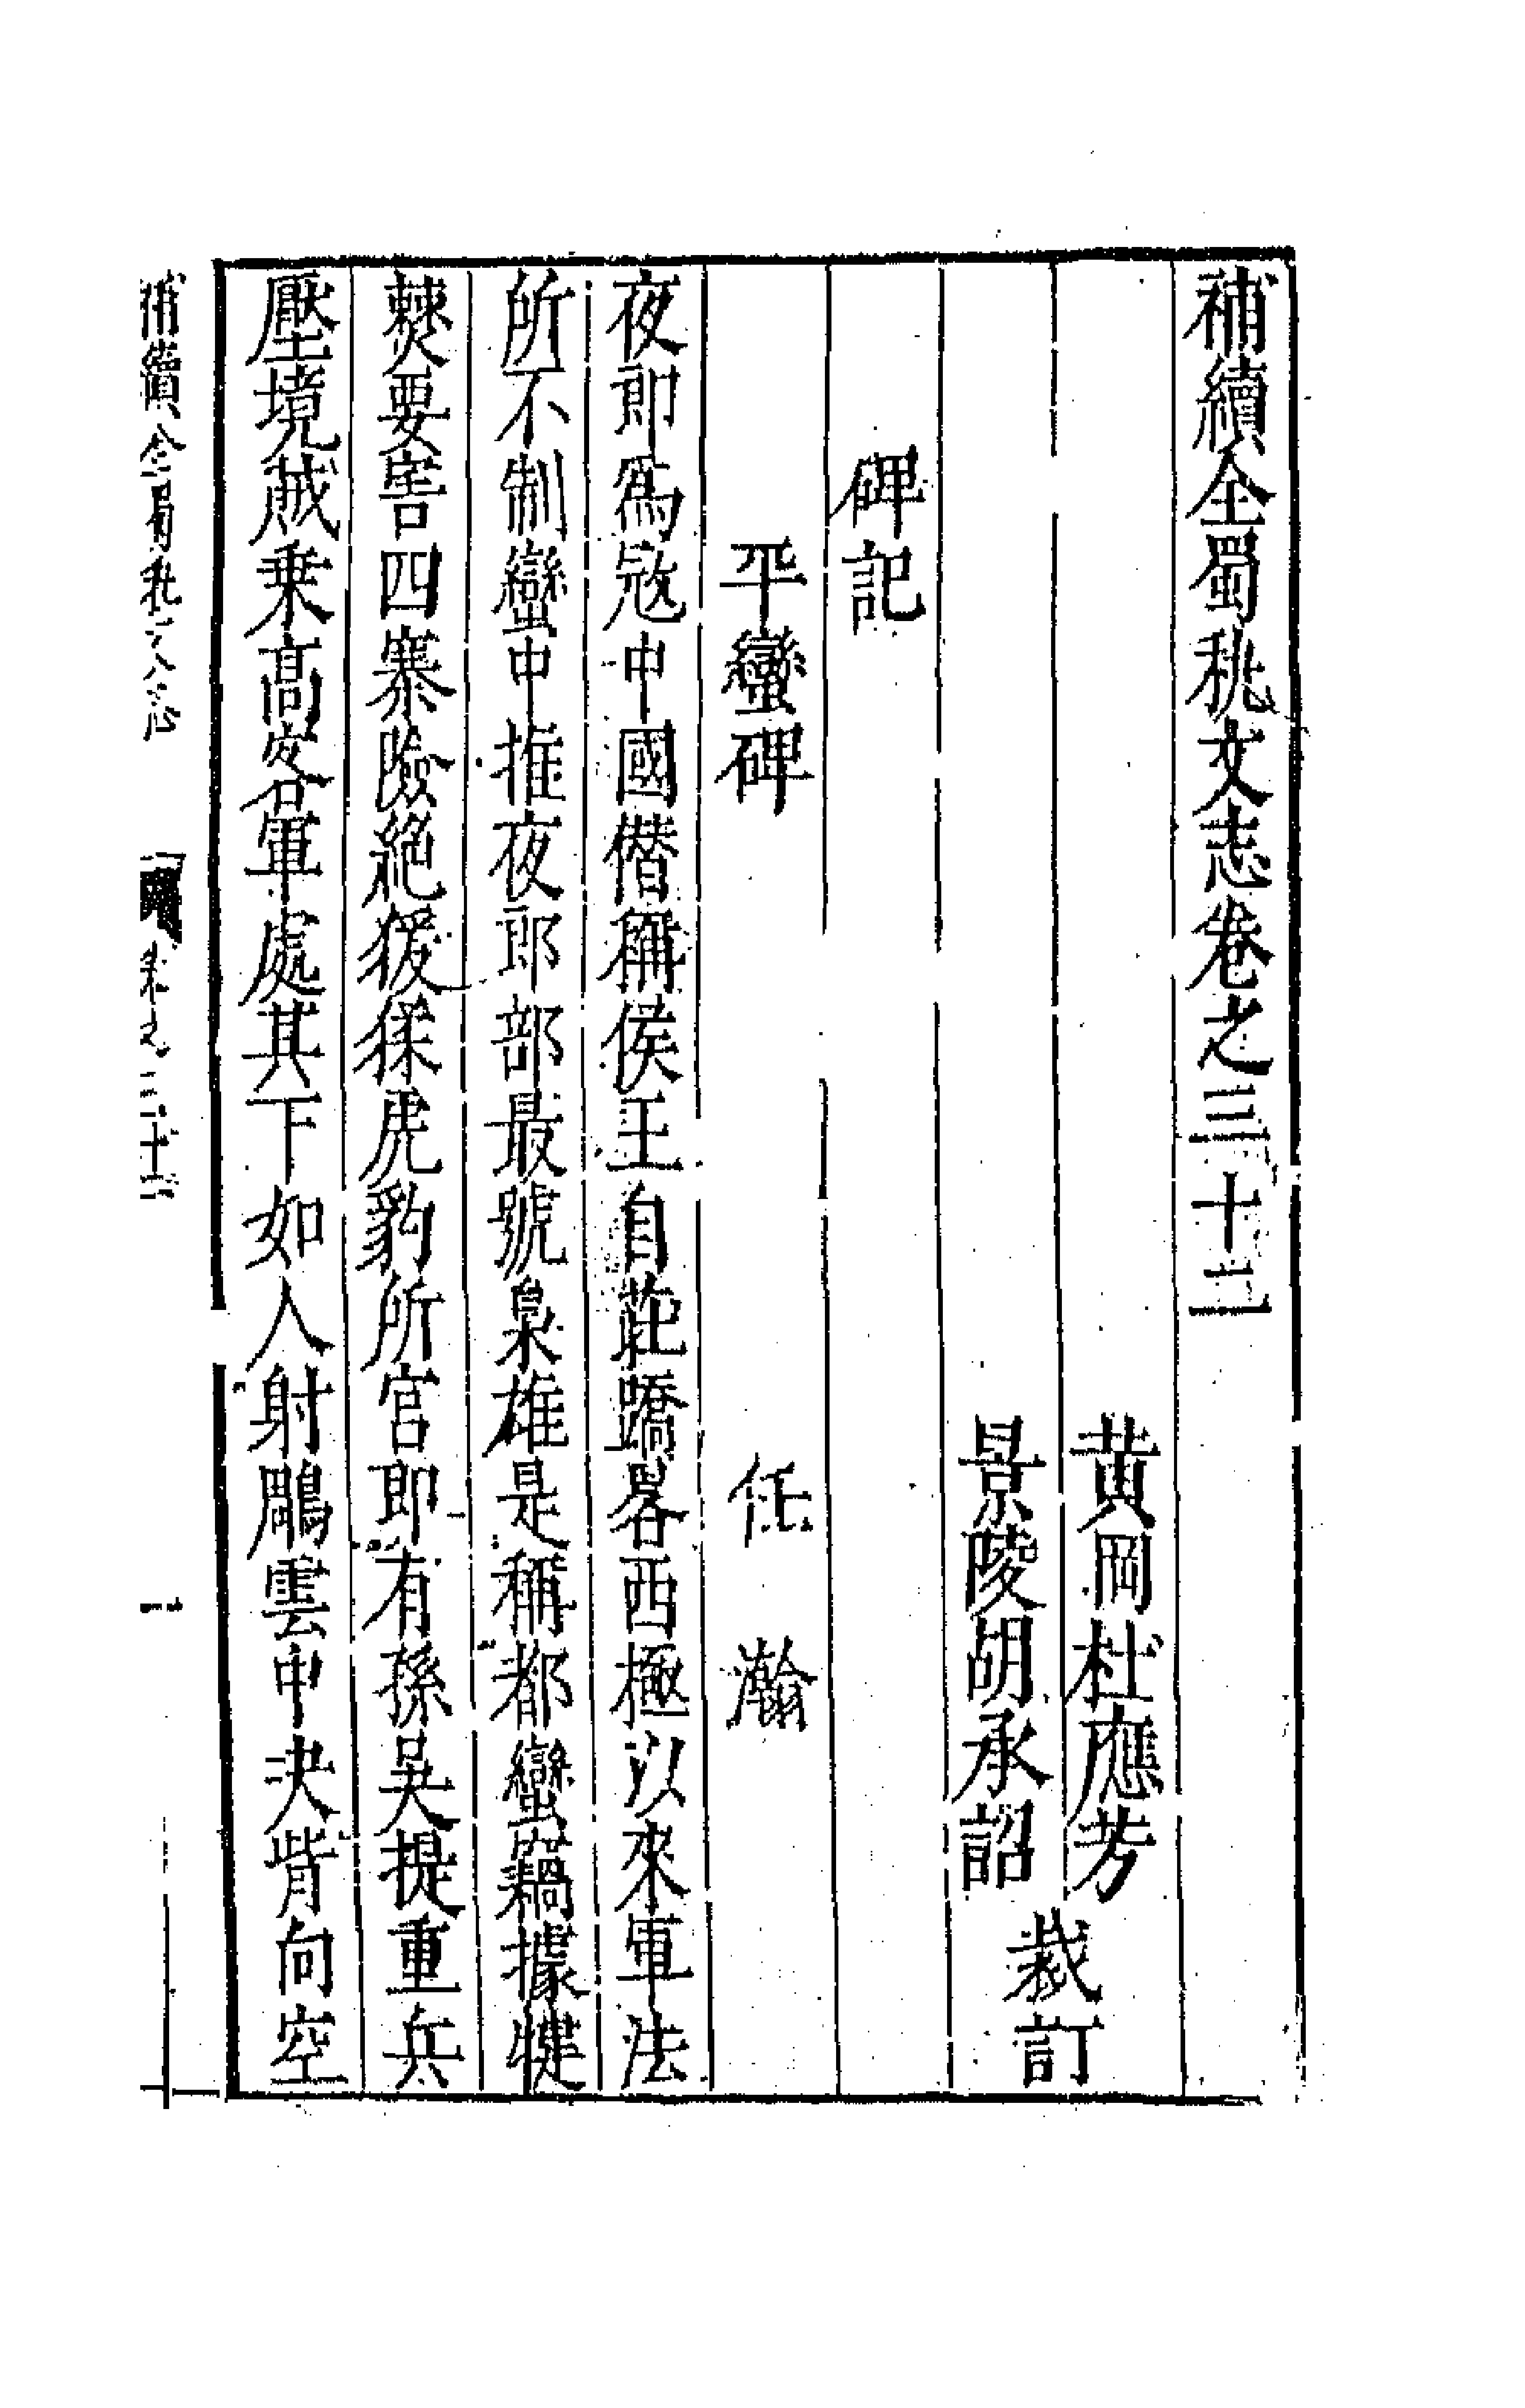 補續全蜀秇文志卷之三十二
黄岡杜應芳
景陵胡承詔
裁訂
碑記
平蠻碑
任瀚
夜郎爲㓂中國僣稱侯王自莊蹻畧西極以來軍法
所不制蠻中推夜郎部最號梟雄是稱都蠻竊據犍
僰要害四寨險絶猨猱虎豹所官即有孫吳提重兵
壓境賊乗高客軍處其下如人射鵰雲中决背向空
補續全蜀秇文志
卷之三十二
一